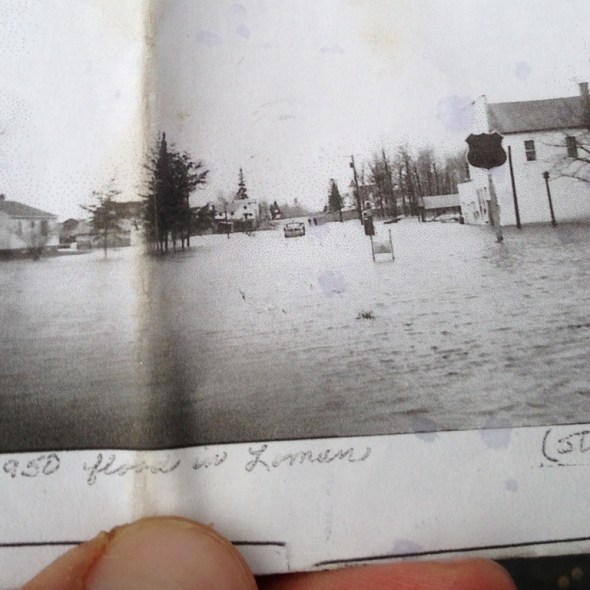 950 flood in Loman (ST